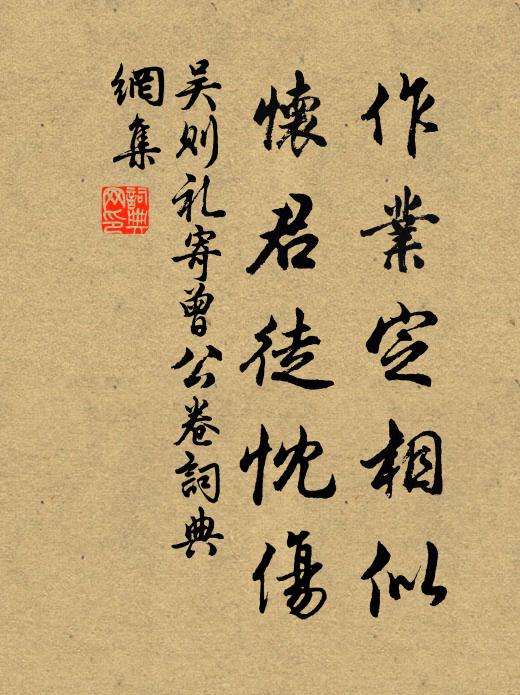 作業定相似
懷君徒忱傷
吴则礼寄曾公卷詞典
網集
詞典
网印